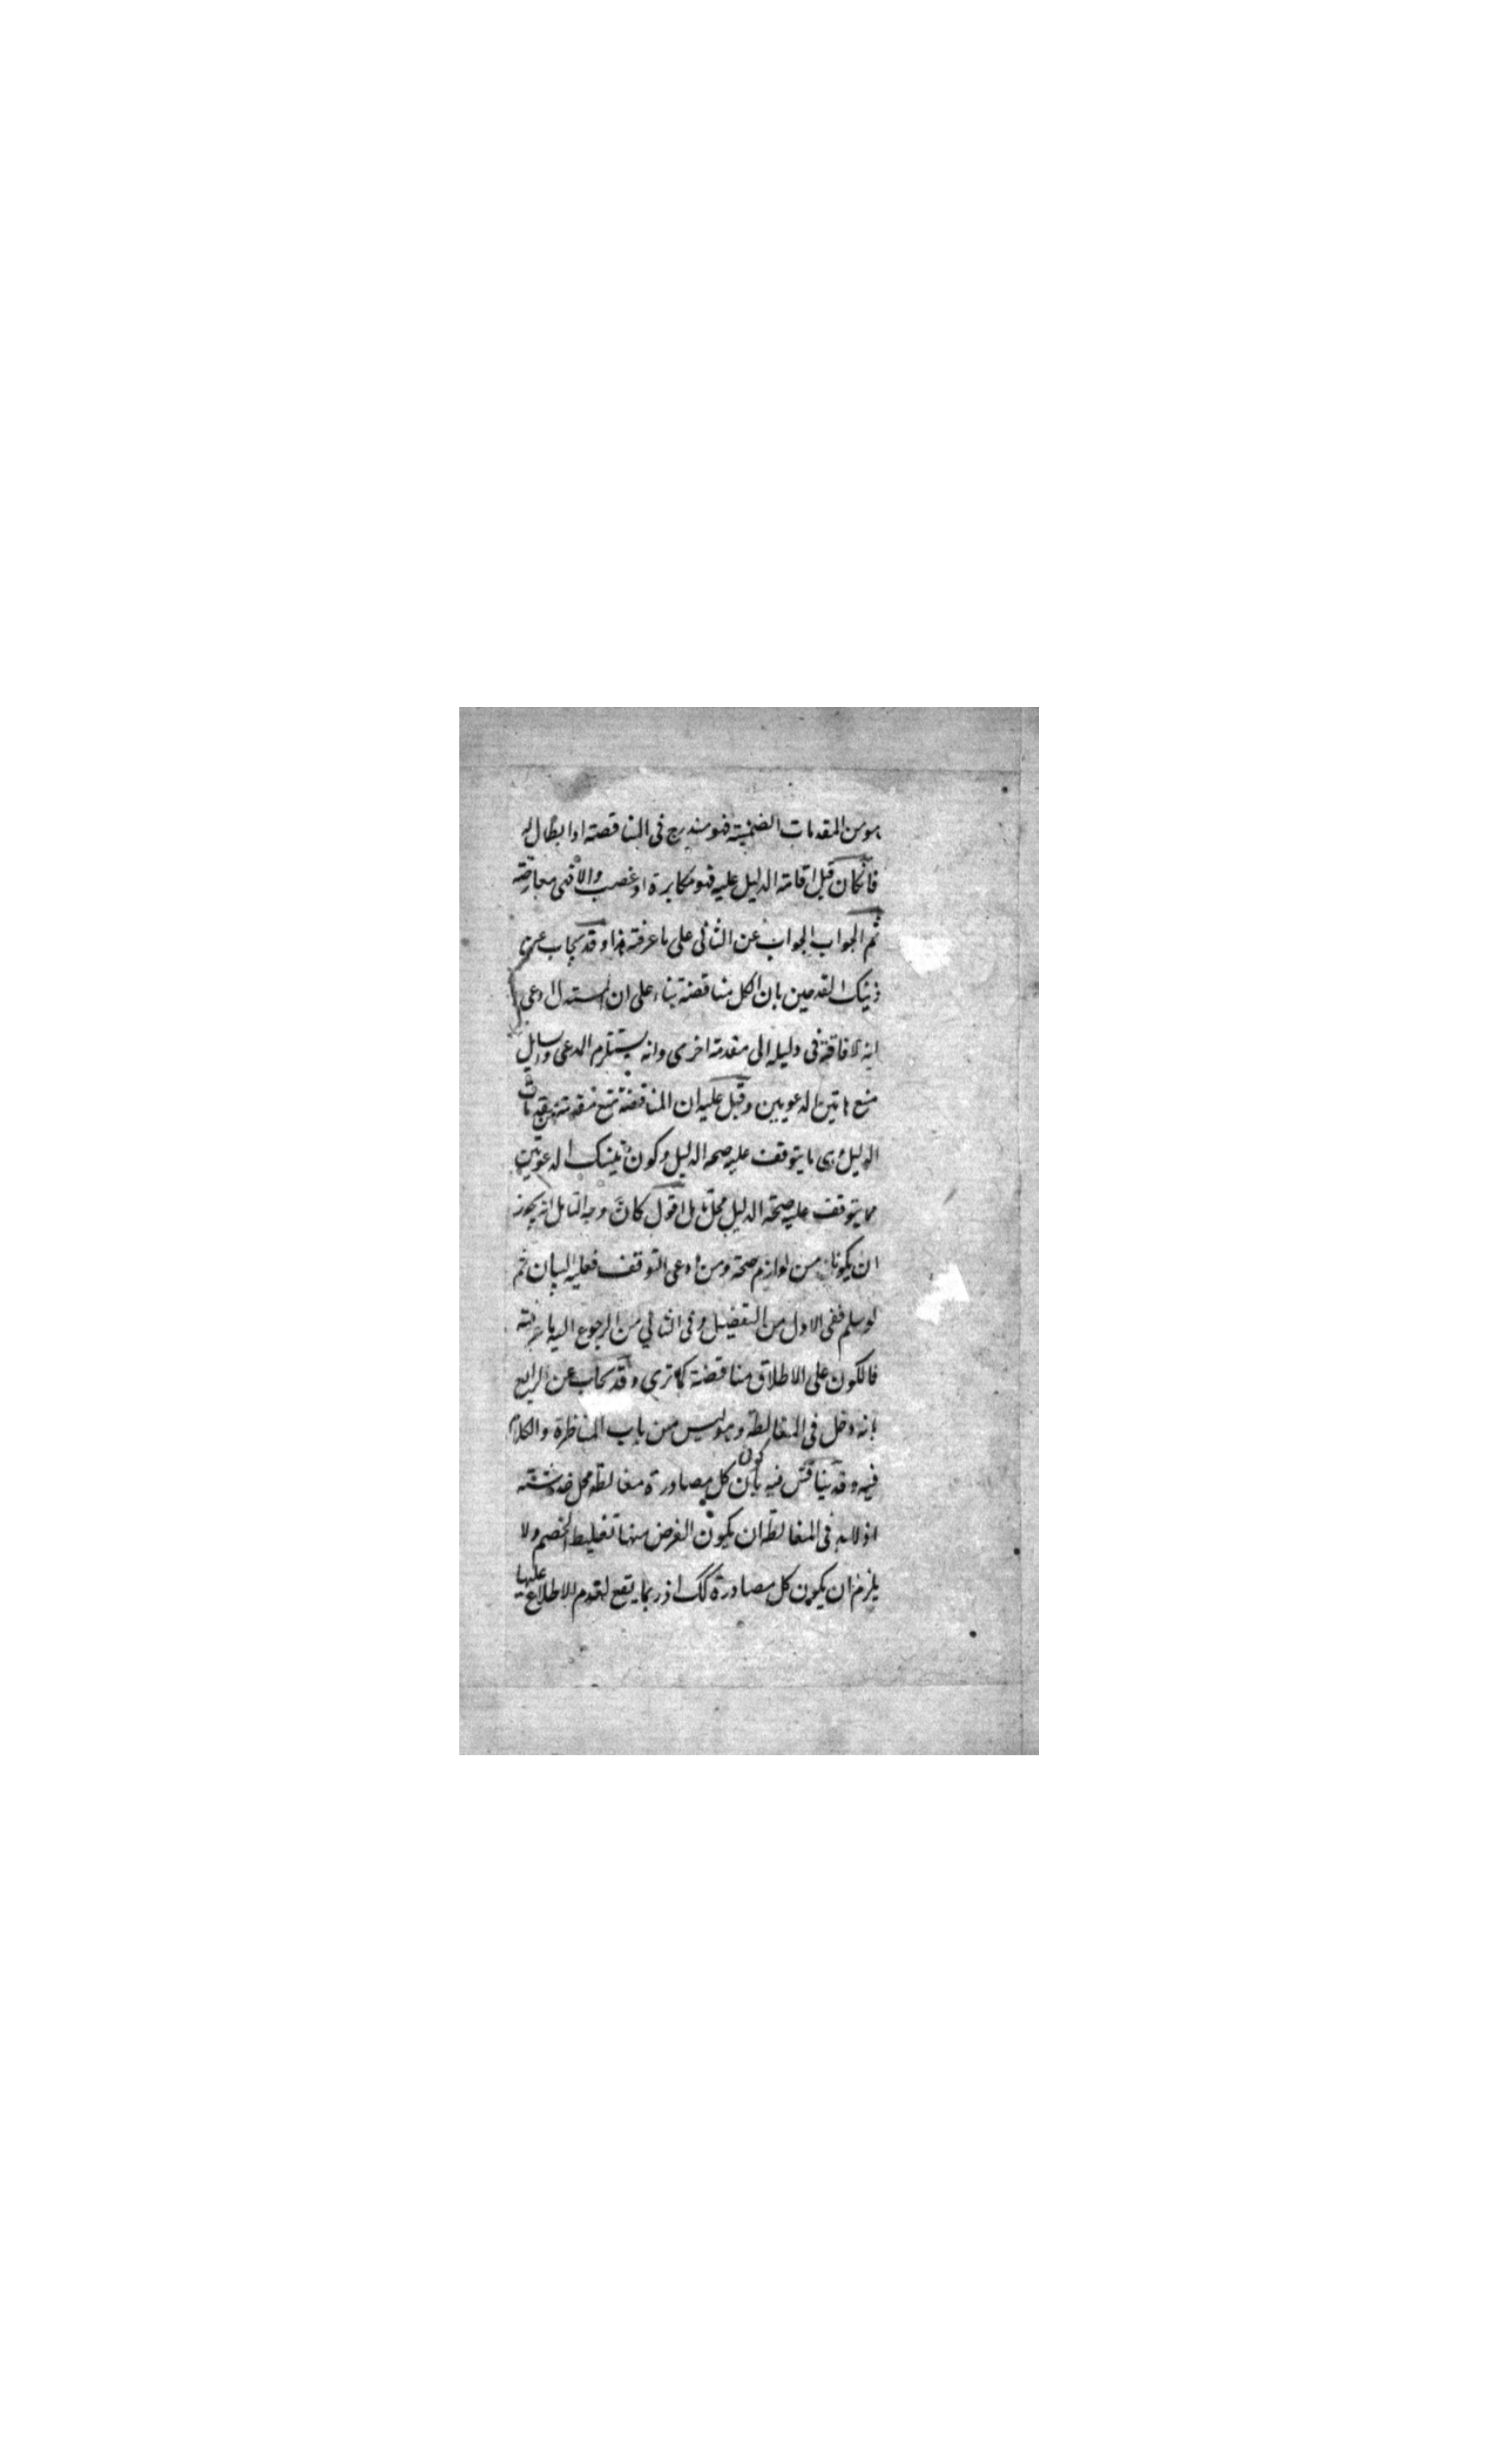 هو من المقدمات الضمنية فهو مندرج في المناقضة او ابطال له
فانكان قبل اقامة الدليل عليه فهو مكابرة او غصب والا فهي معارضة
ثم الجواب الجواب عن الثاني على ما عرفته هذا وقد يجاب عن
ذينك القدحين بان الكل مناقضة بناء على ان المستدل ادعى
انه لا فاقة في دليله الى مقدمة اخرى وانه يستلزم المدعى والسايل
منع هاتين الدعويين وقيل عليه ان المناقضة منع مقدمة من مقدمات
الدليل وهي ما يتوقف عليه صحة الدليل وكون تينك الدعويين
مما يتوقف عليه صحة الدليل محل تامل اقول كان وجه التامل انه يجوز
ان يكونا من لوازم صحته ومن ادعى التوقف فعليه البيان ثم
لو سلم ففي الاول من التفصيل وفي الثاني من الرجوع اليه ما عرفته
فالكون على الاطلاق مناقضة كما ترى وقد يجاب عن الرابع
بانه دخل في المغالطة وهو ليس من باب المناظرة والكلام
فيه وقد يناقش فيه بان كون كل مصادرة مغالطة محل خدشة
اذ لابد في المغالطة ان يكون الغرض منها تغليط الخصم ولا
يلزم ان يكون كل مصادرة كك اذ ربما يقع لعدم الاطلاع عليها